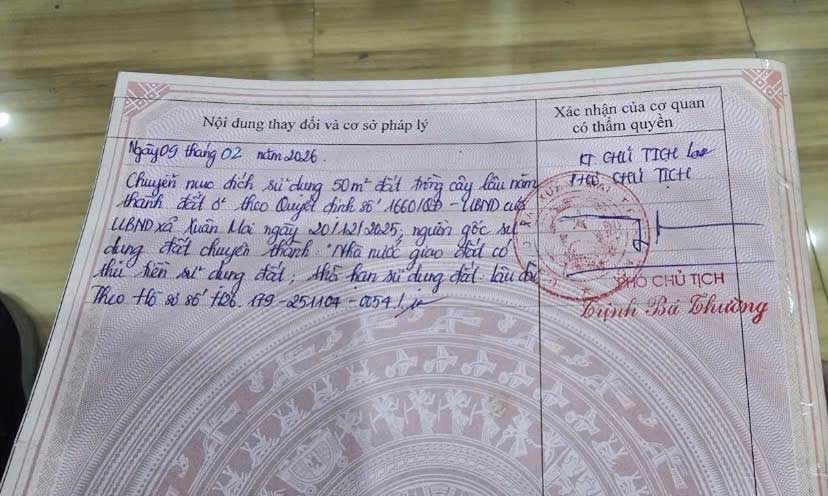 Nội dung thay đổi và cơ sở pháp lý
Xác nhận của cơ quan
có thẩm quyền
Ngày 09 tháng 02 năm 2026.
Chuyển mục đích sử dụng 50m² đất trồng cây lâu năm
thành đất ở theo Quyết định số 1660/QĐ-UBND của
UBND xã Xuân Mai ngày 20/12/2025; nguồn gốc sử
dụng đất chuyển thành: "Nhà nước giao đất có
thu tiền sử dụng đất; thời hạn sử dụng đất: lâu dài
Theo Hồ sơ số H26.179-251104-0054/.
KT CHỦ TỊCH
PHÓ CHỦ TỊCH
PHÓ CHỦ TỊCH
Trịnh Bá Thường